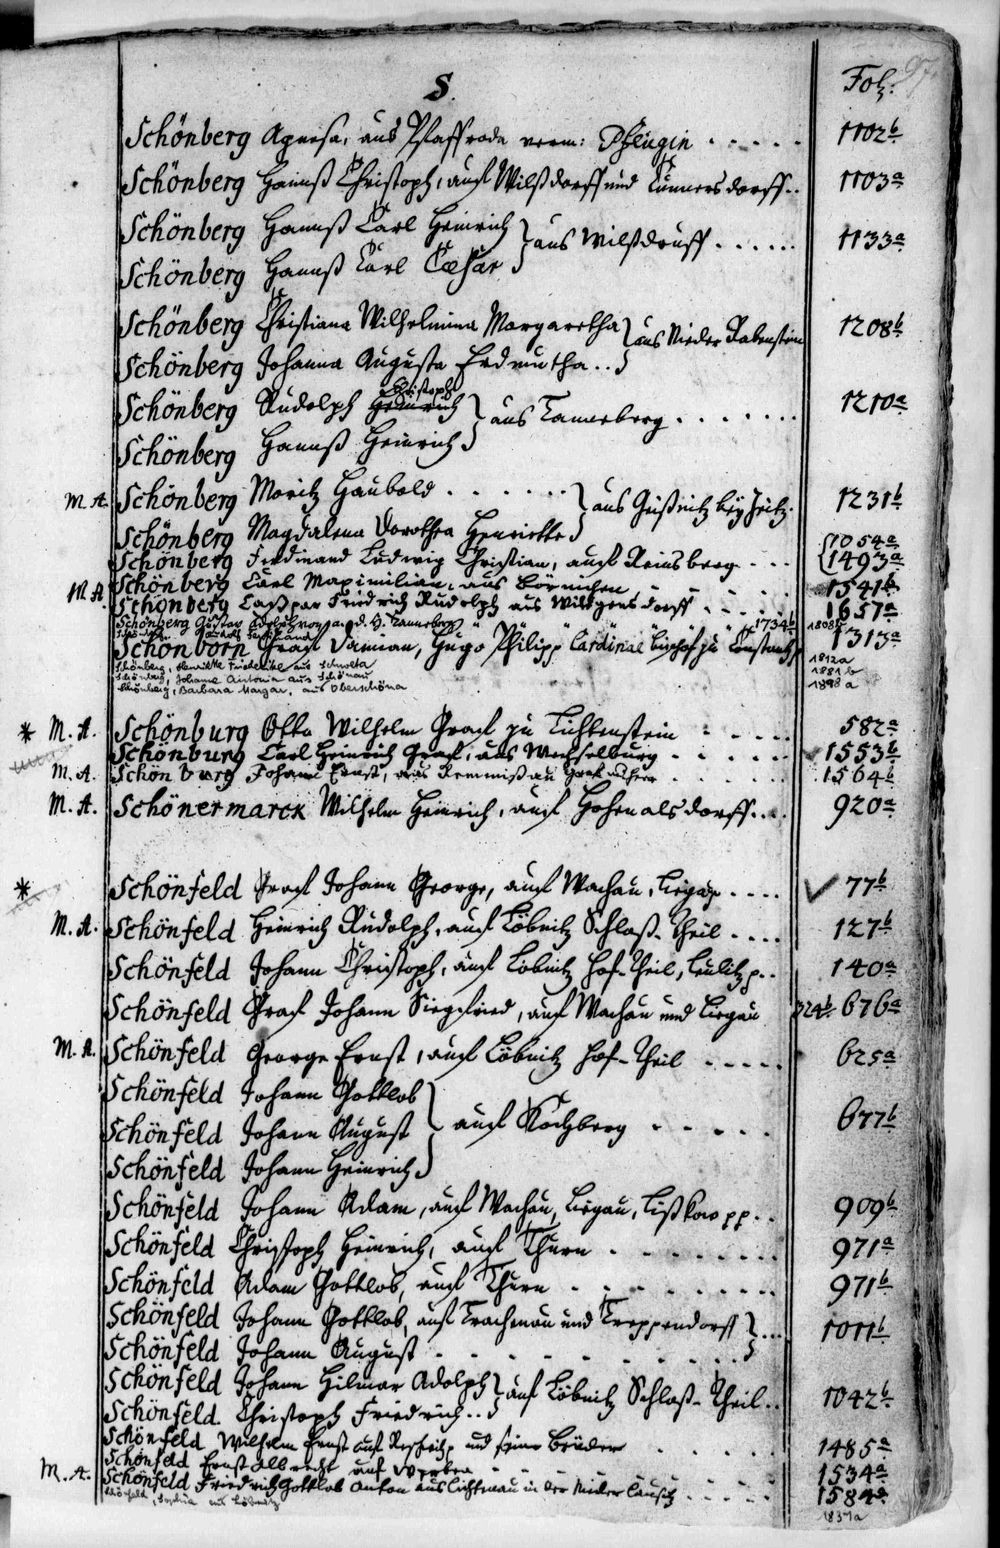 97.
S.
Fol:
Schönberg Agnesa, aus Pfaffroda verm: Pflugin . . . . . 1102b
Schönberg Hannß Christoph, auf Wilßdorff und Cunnersdorff. . 1103a
Schönberg Hannß Carl Heinrich } aus Wilßdruff . . . . . . 1133a
Schönberg Hannß Carl Cæsar
Schönberg Christiana Wilhelmina Margaretha } aus Nieder Rabenstein 1208b
Schönberg Johanna Augusta Erdmutha . .
Schönberg Rudolph Heinrich Christoph } aus Tanneberg . . . . . . . 1210a
Schönberg Hannß Heinrich
M. A. Schönberg Moritz Haubold . . . . . . } aus Gißnitz bey Zeitz. 1231b
Schönberg Magdalena Dorothea Henriette
Schönberg Ferdinand Ludwig Christian, auf Reinsberg . . . { 1054a 1493a
M. A. Schönberg Carl Maximilian, aus Börnichen 1541b
Schönberg Casspar Friedrich Rudolph aus Wittgensdorff . . . . 1657a
Schönberg Gustav Adolph von, a. d. H. Tanneberg 1734b 1808b
Schönborn Graf Damian, Hugo Philipp Cardinal Bischof zu Constantz 1313a
Schönberg, Henriette Friederike aus 1812a
Schönberg, Johanne Antonia aus Schönau 1881b
Schönberg, Barbara Margar, aus Oberschöna 1898a
* M. A. Schönburg Otto Wilhelm Graf zu Lichtenstein . . . . . 582a
Schönburg Carl Heinrich Graf, aus Wechselburg . . . . . . 1553b
M. A. Schönburg Johann Ernst, aus Remmißau Graf u. Herr . . . . . 1564b
M. A. Schönermarck Wilhelm Heinrich, auf Hohenalsdorff. . . . 920a
* Schönfeld Graf Johann George, auf Wachau, . . . . 77b
M. A. Schönfeld Heinrich Rudolph, auf Löbnitz Schloß-Theil . . . . 127b
Schönfeld Johann Christoph, auf Löbnitz Hof-Theil, p. . 140a
Schönfeld Graf Johann Siegfried, auf Wachau und 324b 676a
M. A. Schönfeld George Ernst, auf Löbnitz Hof-Theil . . . . . 625a
Schönfeld Johann Gottlob
Schönfeld Johann August } auf Kochberg . . . . . 677b
Schönfeld Johann Heinrich
Schönfeld Johann Adam, auf Wachau, pp. . 909b
Schönfeld Christoph Heinrich, auf Thurn . . . . . . . . 971a
Schönfeld Adam Gottlob, auf Thurn . . . . . . . . . 971b
Schönfeld Johann Gottlob, auf Trachenau und Treppendorff } . . . 1011b
Schönfeld Johann August . . . . . . . .
Schönfeld Johann Hilmar Adolph } auf Löbnitz Schloß-Theil . . 1042b
Schönfeld Christoph Friedrich . .
Schönfeld Wilhelm Ernst auf und seine Brüder . . . . . 1485a
Schönfeld Ernst Albrecht auf Werben . . . . . . . 1534a
M. A. Schönfeld Friedrich Gottlob Anton aus Lichtenau in der Nieder Lausitz . . . . . 1584a
Schönfeld, Sophia aus Löbnitz 1837a